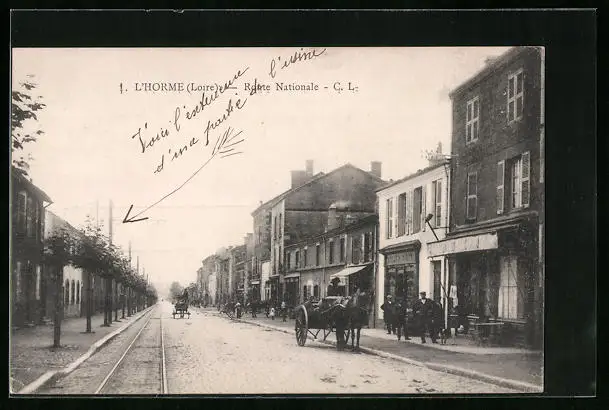 1. L'HORME (Loire) — Route Nationale - C. L.
Voici l'extérieur
d'une partie de l'usine